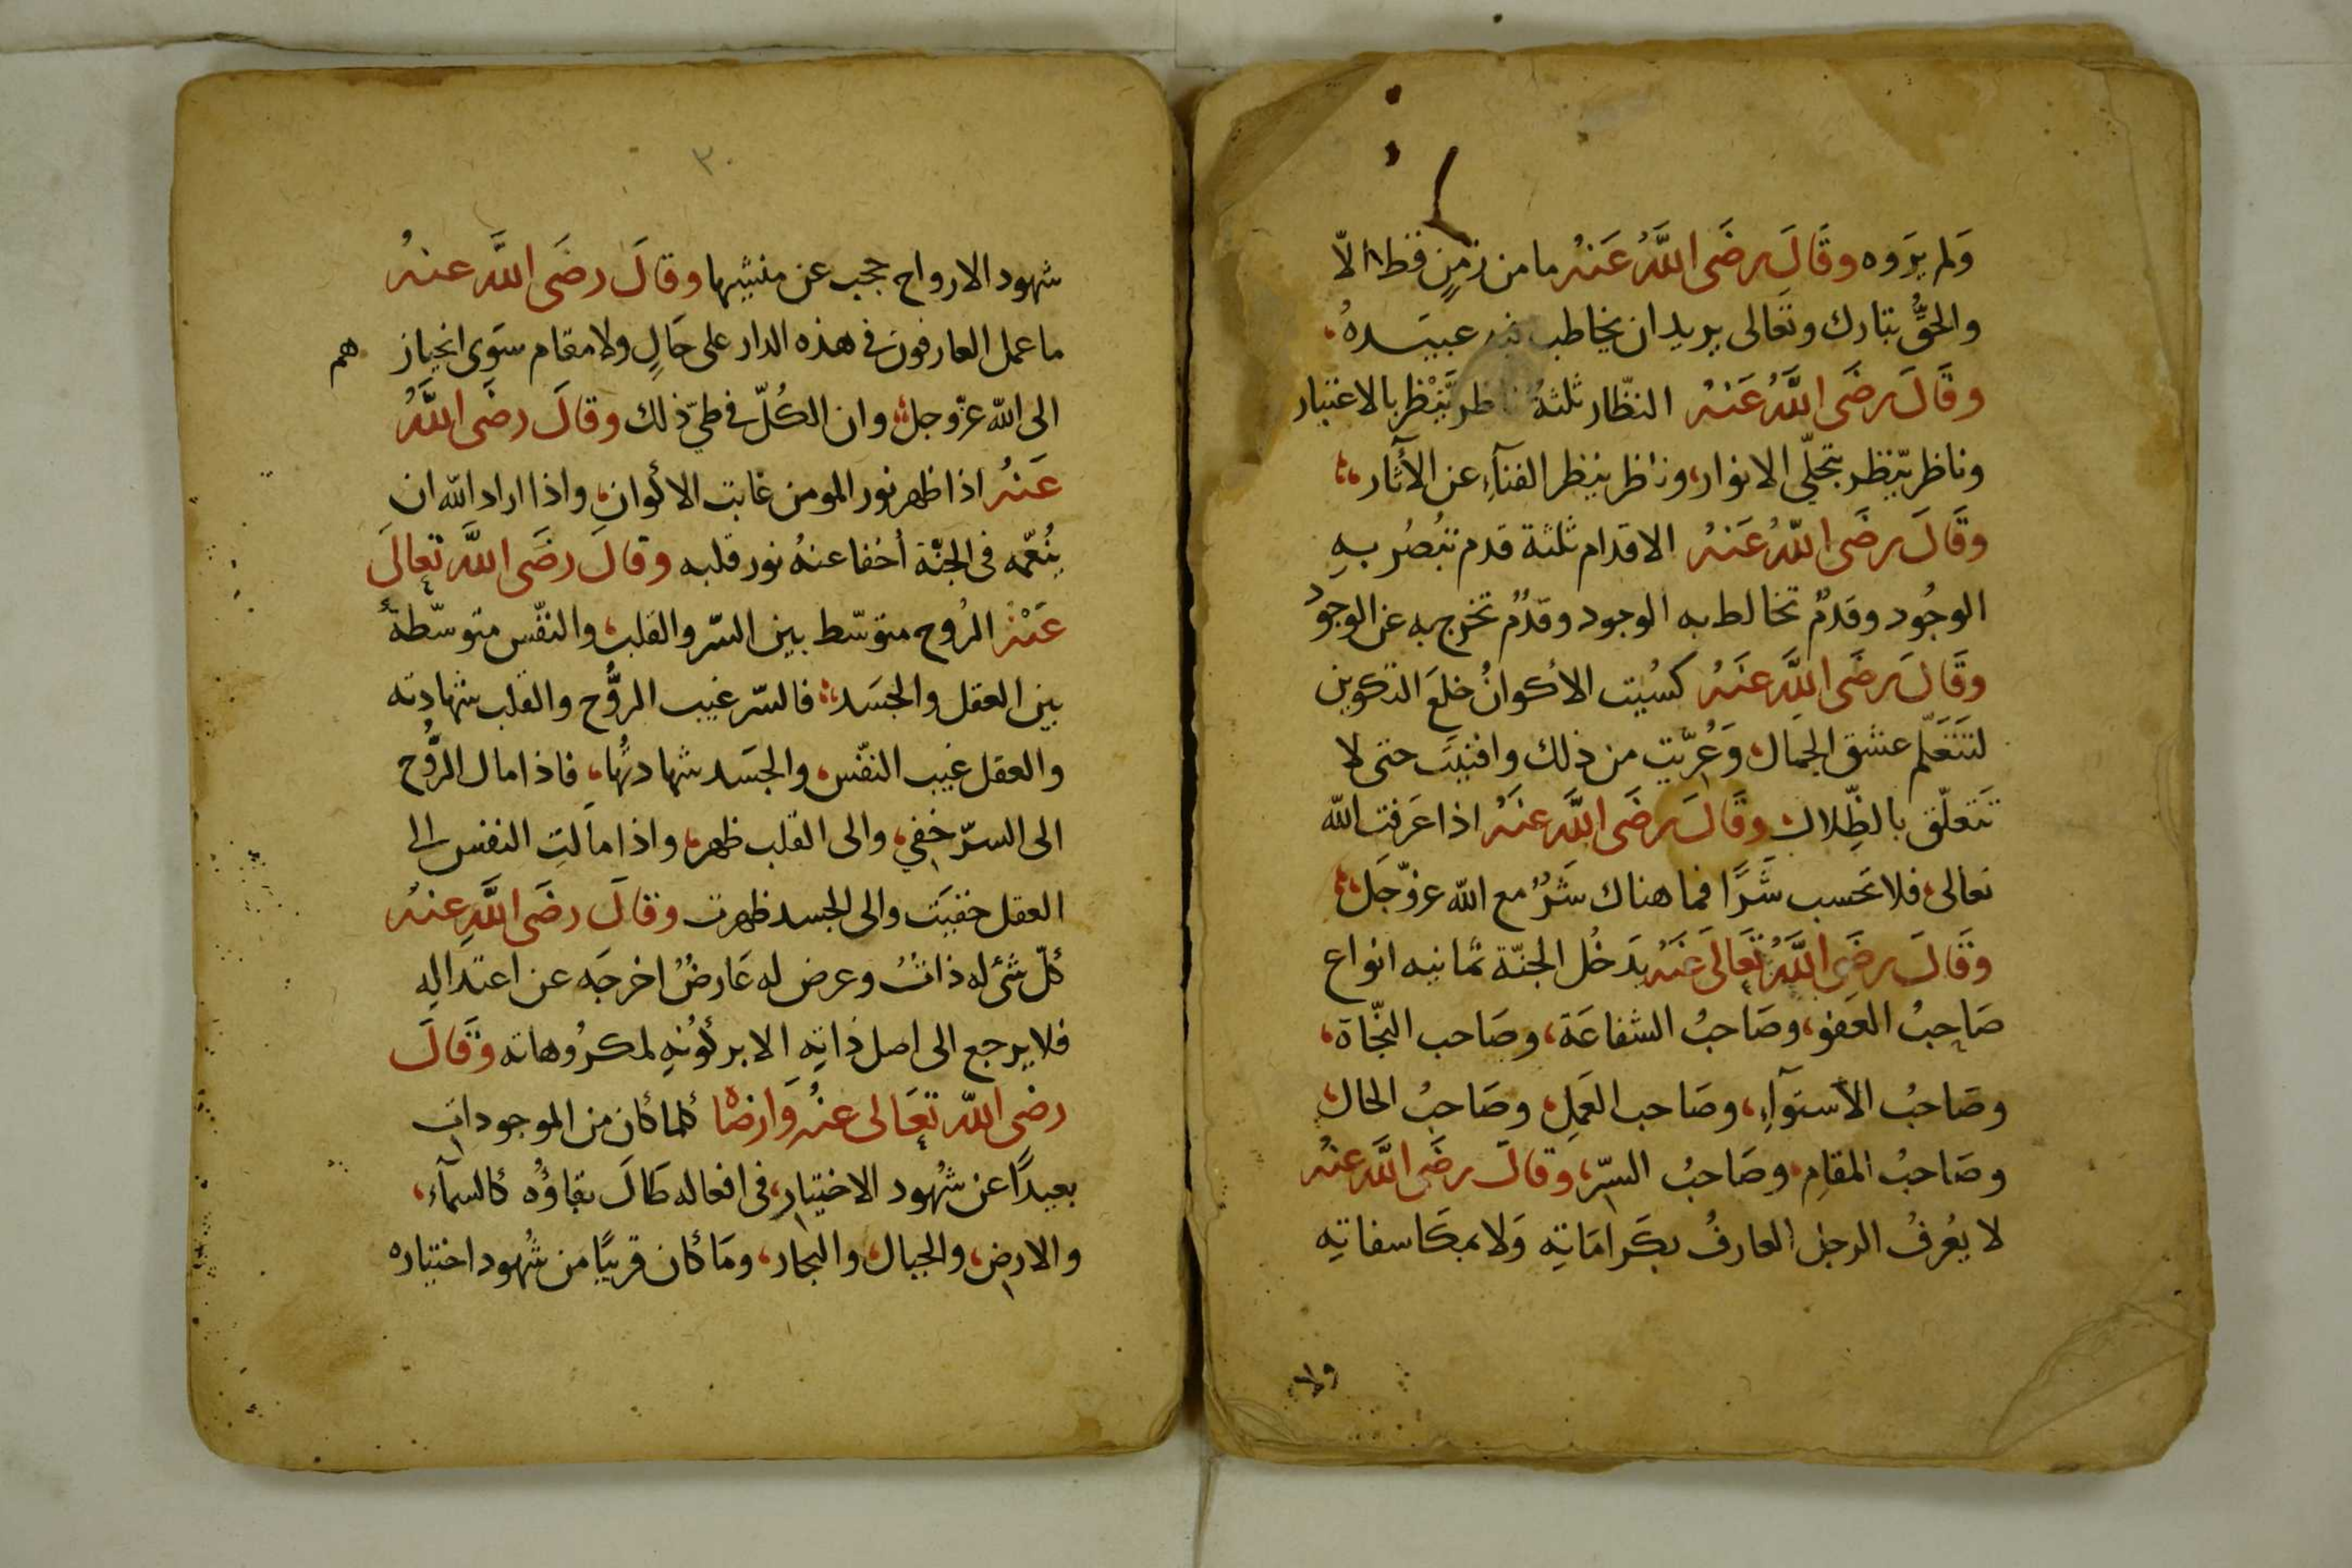 وَلم يرَوه وقَالَ رضَى اللَّهُ عَنهُ ما من زمنٍ قط الّا
والحقُّ بتارك وتعَالى يريد ان يخاطب عبيدهُ
وقَالَ رضَى اللَّهُ عَنهُ النظّار ثلثةُ ناظر يَّنْظر بالاعتبار
وناظر يّنظر بتجلّي الانوار، وناظر ينظر الفنآءِ عن الأثار
وقَالَ رضَى اللّهُ عَنهُ الاقدام ثلثة قدم تبُصُر بهِ
الوجُود وقدمٌ تخالط به الوجود وقدٌم تخرج به عن الوجود
وقَالَ رضَى اللَّهَ عنَهُ كسُيت الأكوانُ خلعَ التكوين
لتتَعَلّم عشق الجمال، وَعُرّيت من ذلك وافنيَت حتى لا
تَتعلّق بالظِّلال وقَالَ رضَى اللَّهَ عنهُ اذا عَرفت اللّه
تعالى فلا تحَسب شَرًّا فما هناك شَرٌّ مع اللّه عزوّجَل
وقَالَ رضَى اللَّهُ تَعَالَى عَنهُ يدَخُل الجنّة ثمانيه انواع
صَاحِبُ العَفو، وصَاحبُ الشفاعَة، وصَاحب النجّاة،
وصَاحبُ الأستوآءِ، وصَاحب العَمِل، وصَاحبُ الحال
وصَاحبُ المقامِ، وصَاحبُ السرّ، وقالَ رضَى اللَّه عنهُ
لا يعُرفُ الرجل العارفُ بكَرامَاتِهِ وَلا بمكَاسفاتِهِ
ولا
٣٠
شهود الارواح حجب عن منشيها وقالَ رضَى اللَّه عنهُ
ما عمل العارفون في هذه الدار على حَالٍ ولا مقام سوَى انحياز هم
الى اللّه عزّوجل وان الكُلّ في طيّ ذلك وقالَ رضَى اللَّهُ
عَنهُ اذا ظهر نور المومن غابت الأكوان، واذا اراد اللّه ان
ينُعّمه فى الجنّة أخفا عنهُ نور قلبه وقالَ رضَى اللَّه تعَالَى
عَنْهُ الرُوح متوّسّط بين السّر والقلب، والنفّس متوسّطةٌ
بين العقل والجسَد فالسّر غيب الروُّح والقلب شهادته
والعقل غيب النفّس، والجسَد شهادتُها، فاذا مال الروُّح
الى السرّ خفي، والى القلب ظهر، واذا مالتِ النفس الى
العقل خفيَت والى الجسد ظهرت وقالَ رضَى اللَّهِ عنهُ
كلّ شئ له ذاتٌ وعرض له عَارضٌ اخرجَه عن اعتدالهِ
فلا يرجع الى اصل ذاتِهِ الا بركوُنهِ لمكرُوهاته وقَالَ
رضى اللّه تعَالى عنهُ وَارضاهُ كلما كان من الموجودات
بعيدًا عن شُهود الاختيارِ، فى افعاله طَالَ بقاؤُه كالسمآء،
والارض، والجبال، والبحار، ومَا كان قريبًا من شُهود اختياره